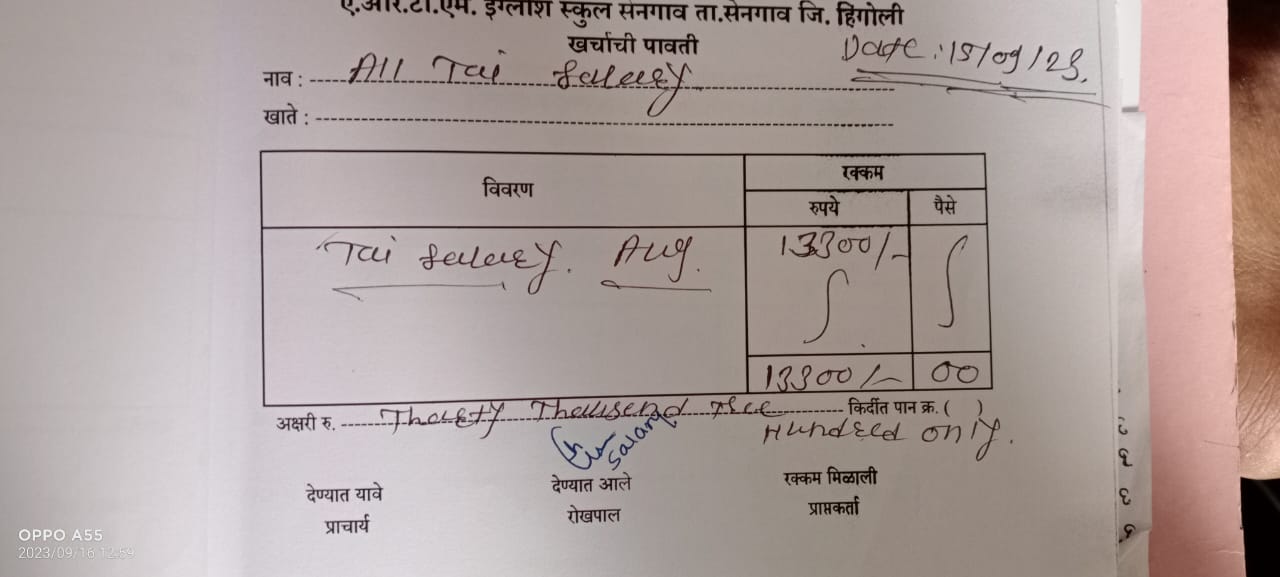 ए.आर.टी.एम. इंग्लीश स्कुल सेनगाव ता.सेनगाव जि. हिंगोली
खर्चाची पावती
Date : 15/09/23.
नाव : All Tai Salary
खाते :
विवरण रक्कम
रुपये पैसे
Tai Salary. Aug. 13300/-
13300/- 00
अक्षरी रु. Thousend किर्दीत पान क्र. ( )
Hundred only.
Salary
देण्यात यावे देण्यात आले रक्कम मिळाली
प्राचार्य रोखपाल प्राप्तकर्ता
OPPO A55
2023/09/16 12:59